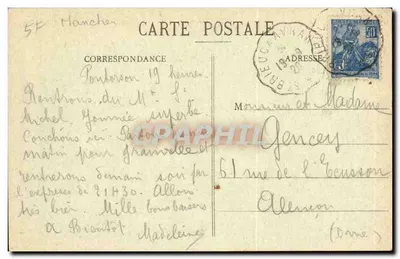 5F Manche
CARTE POSTALE
CORRESPONDANCE
ADRESSE
Pontorson 19 heures
Rentrons du Mt St
Michel Journée superbe
Couchons ici
matin pour Granville et
rentrerons demain soir par
l'express de 21H30. Allons
très bien. Mille bons baisers
A Bientôt Madeleine
Monsieur et Madame
Gencey
61 rue de l'Ecusson
Alençon
(Orne)